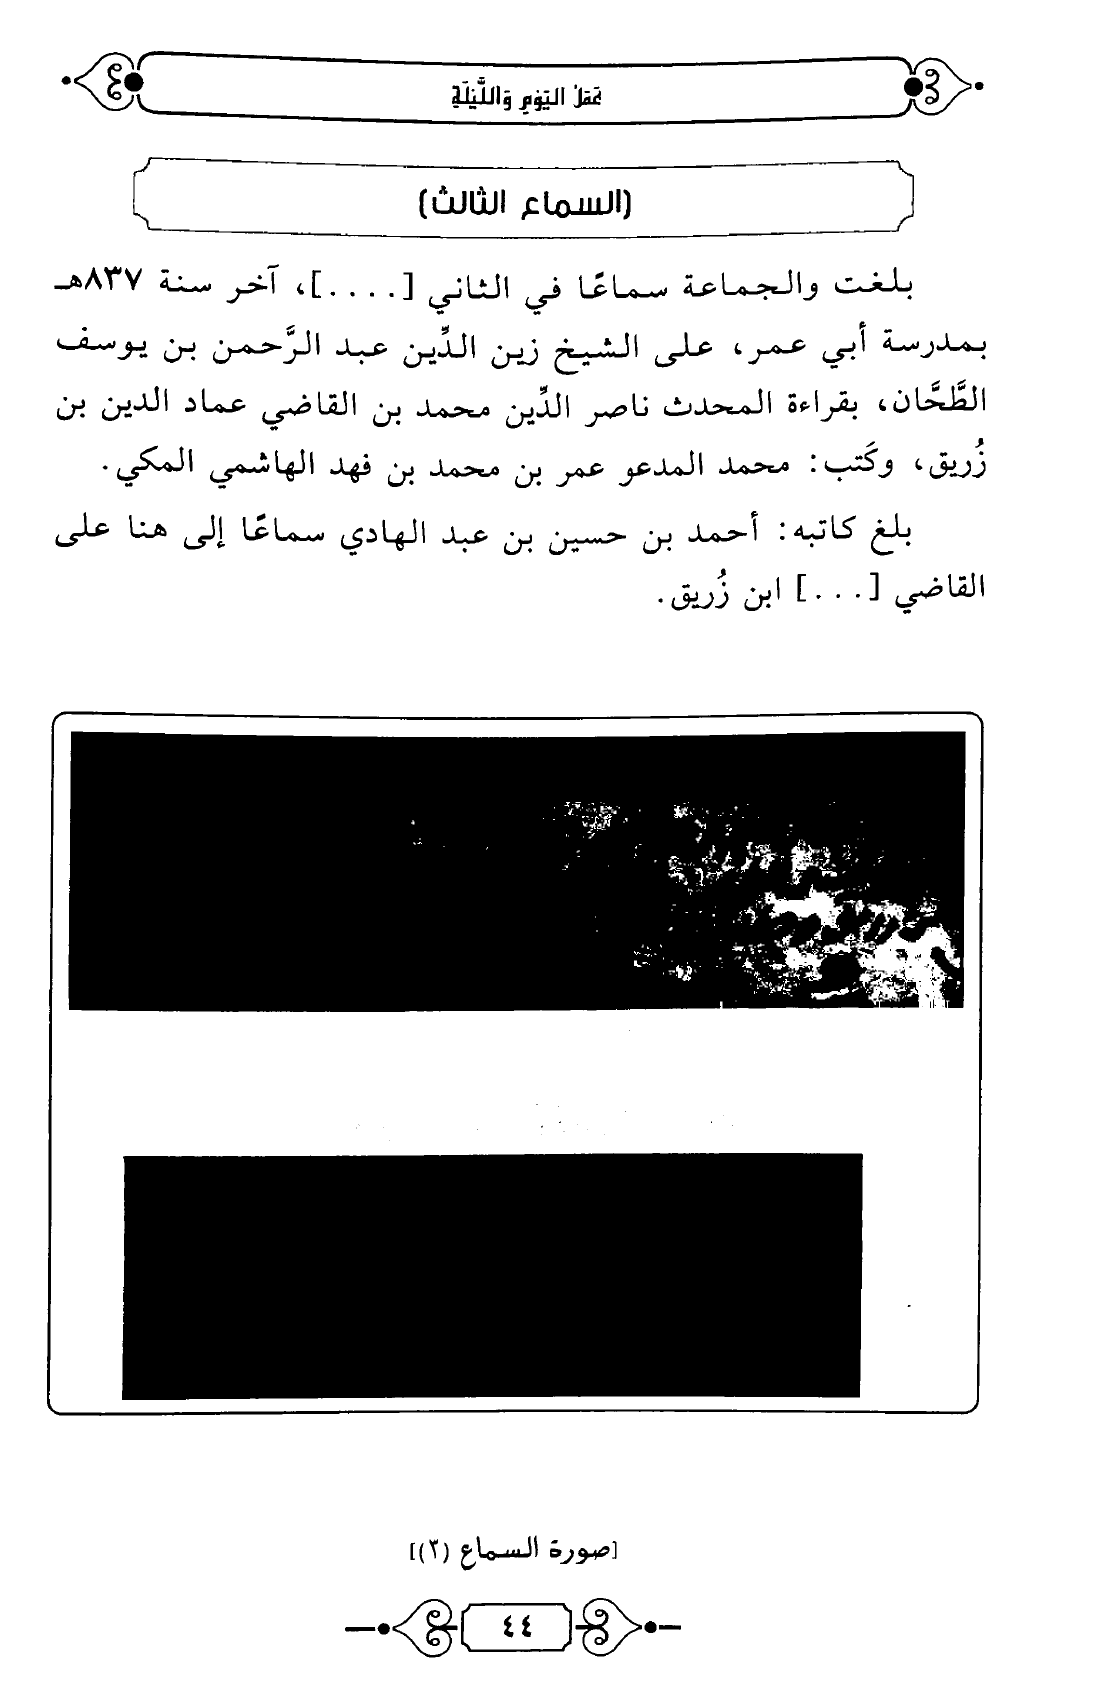 عَمَلُ اليَوْمِ وَاللَّيْلَةِ
(السماع الثالث)
بلغت والجماعة سماعًا في الثاني [....]، آخر سنة ٨٣٧هـ
بمدرسة أبي عمر، على الشيخ زين الدِّين عبد الرَّحمن بن يوسف
الطَّحَّان، بقراءة المحدث ناصر الدِّين محمد بن القاضي عماد الدين بن
زُريق، وكَتب: محمد المدعو عمر بن محمد بن فهد الهاشمي المكي.
بلغ كاتبه: أحمد بن حسين بن عبد الهادي سماعًا إلى هنا على
القاضي [...] ابن زُريق.
[صورة السماع (٣)]
٤٤